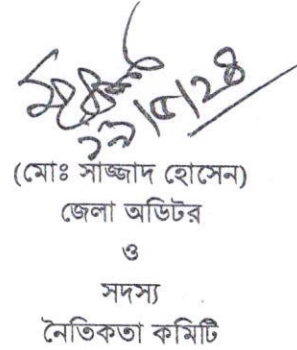 (মোঃ সাজ্জাদ হোসেন)
জেলা অডিটর
ও
সদস্য
নৈতিকতা কমিটি